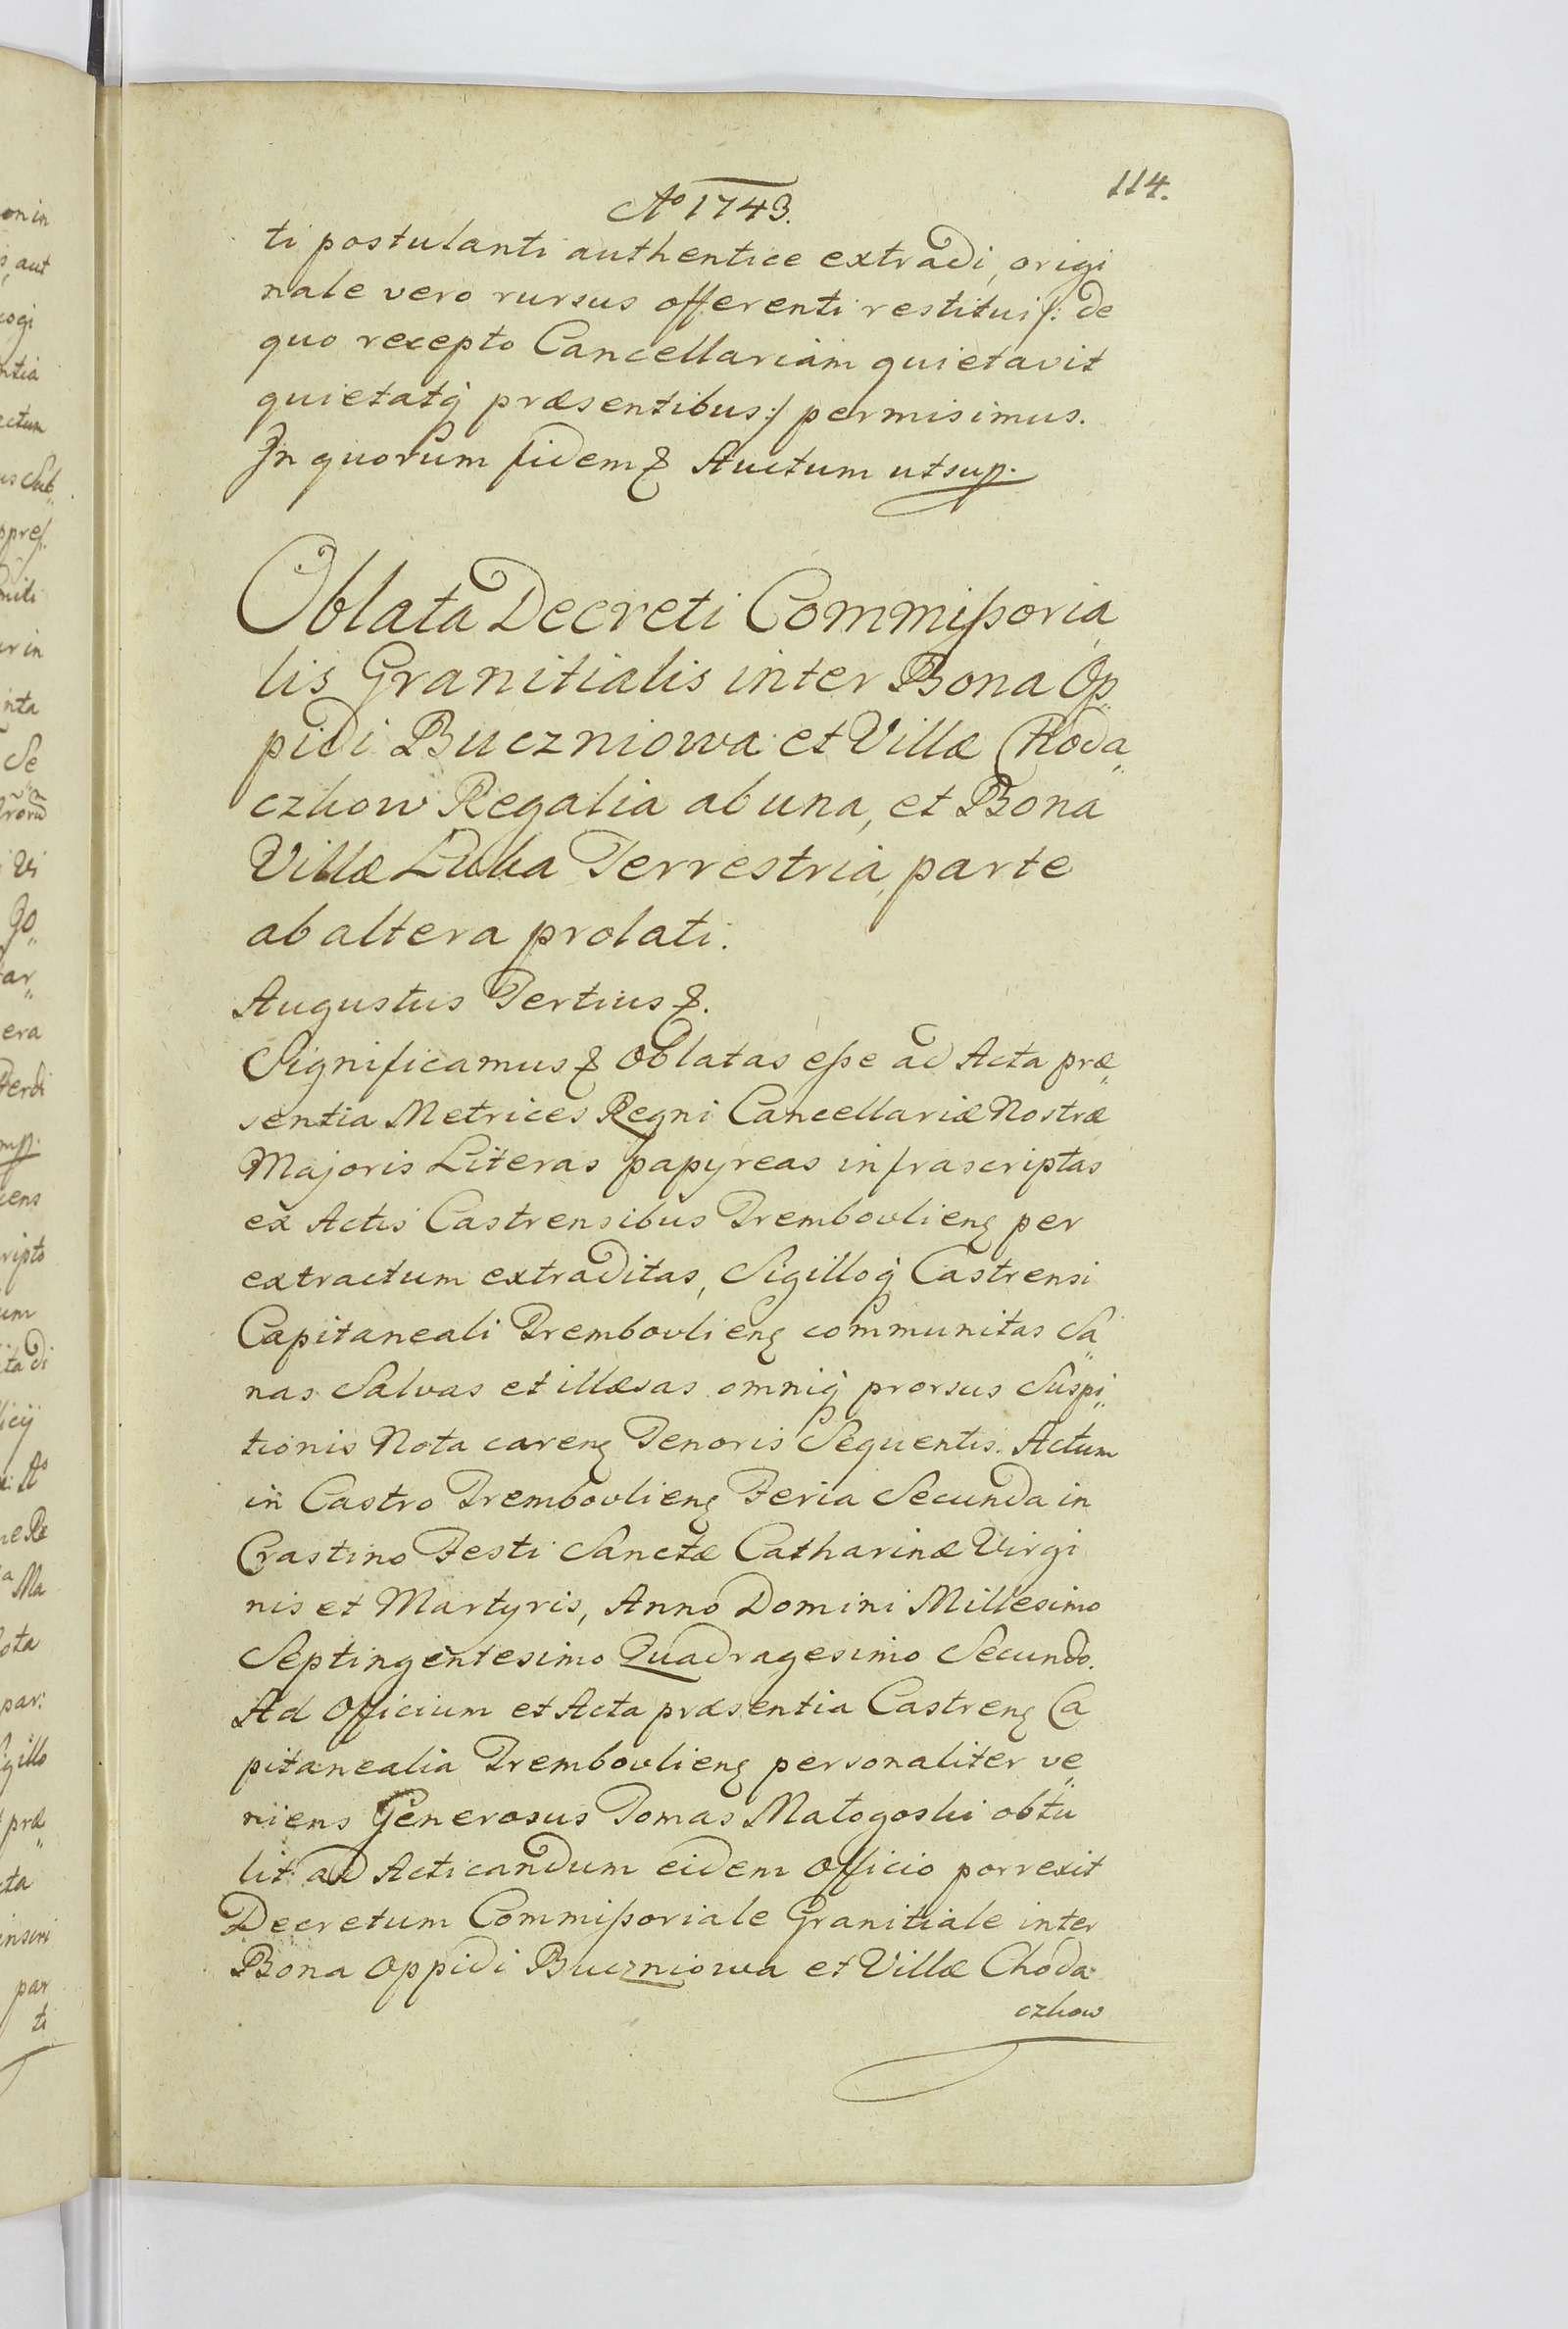 114.
Aº 1743.
ti postulanti authentice extradi, origi
nale vero rursus offerenti restitui /: de
quo recepto Cancellariam quietavit
quietatq́ præsentibus :/ permisimus.
In quorum fidem & Auctum ut sup.
Oblata Decreti Commissoria
lis Granitialis inter Bona Op„
pidi Buczniowa et Villæ Choda„
czkow Regalia ab una, et Bona
Villæ Luka Terrestria, parte
ab altera prolati.
Augustus Tertius &.
Significamus & Oblatas esse ad Acta præ„
sentia Metrices Regni Cancellariæ Nostræ
Majoris Literas papyreas infrascriptas
ex Actis Castrensibus Trembovlien̄ per
extractum extraditas, Sigilloq́ Castrensi
Capitaneali Trembovlien̄ communitas Sa„
nas Salvas et illæsas omniq́ prorsus Suspi„
tionis Nota caren̄ Tenoris Sequentis. Actum
in Castro Trembovlien̄ Feria Secunda in
Crastino Festi Sanctæ Catharinæ Virgi
nis et Martyris, Anno Domini Millesimo
Septingentesimo Quadragesimo Secundo.
Ad Officium et Acta præsentia Castren̄ Ca
pitanealia Trembovlien̄ personaliter ve„
niens Generosus Tomas Matogoski obtu
lit ad Acticandum eidem Officio porrexit
Decretum Commissoriale Granitiale inter
Bona Oppidi Buczniowa et Villæ Choda
czkow